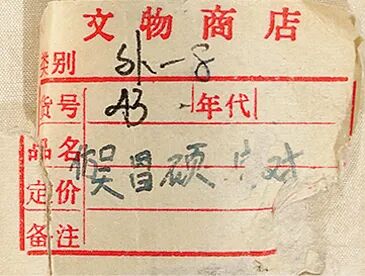 文物商店
类别 外一8
货号 43 年代
品名 吴昌硕 对
定价
备注